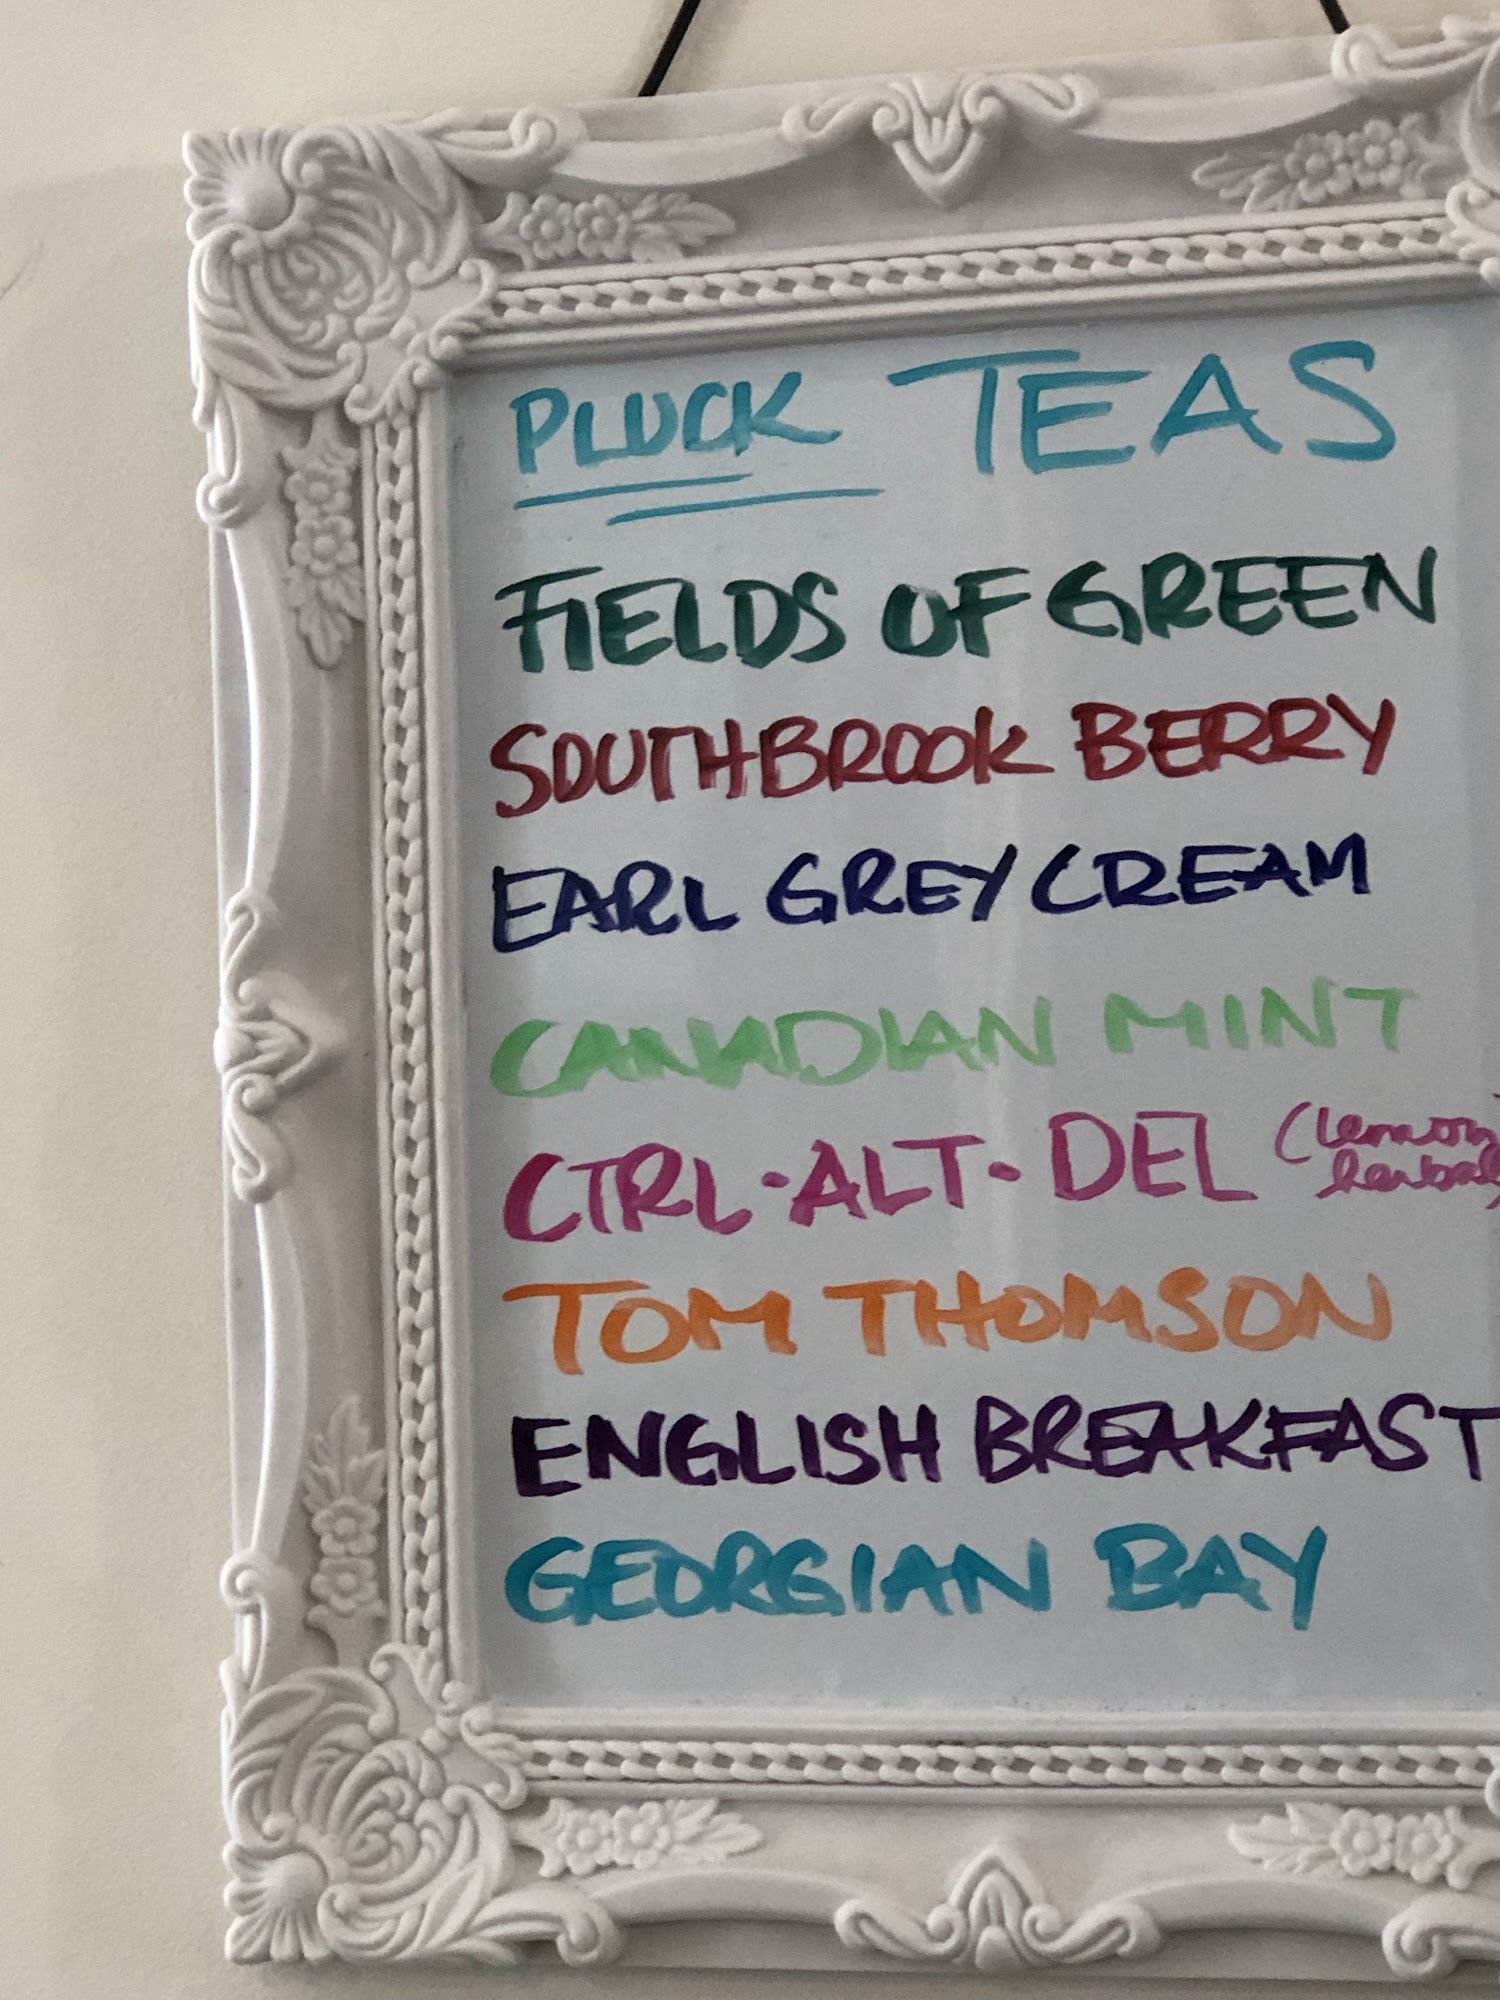 PLUCK TEAS
FIELDS OF GREEN
SOUTHBROOK BERRY
EARL GREY CREAM
CANADIAN MINT
CTRL-ALT-DEL (lemon
herbal)
TOM THOMSON
ENGLISH BREAKFAST
GEORGIAN BAY